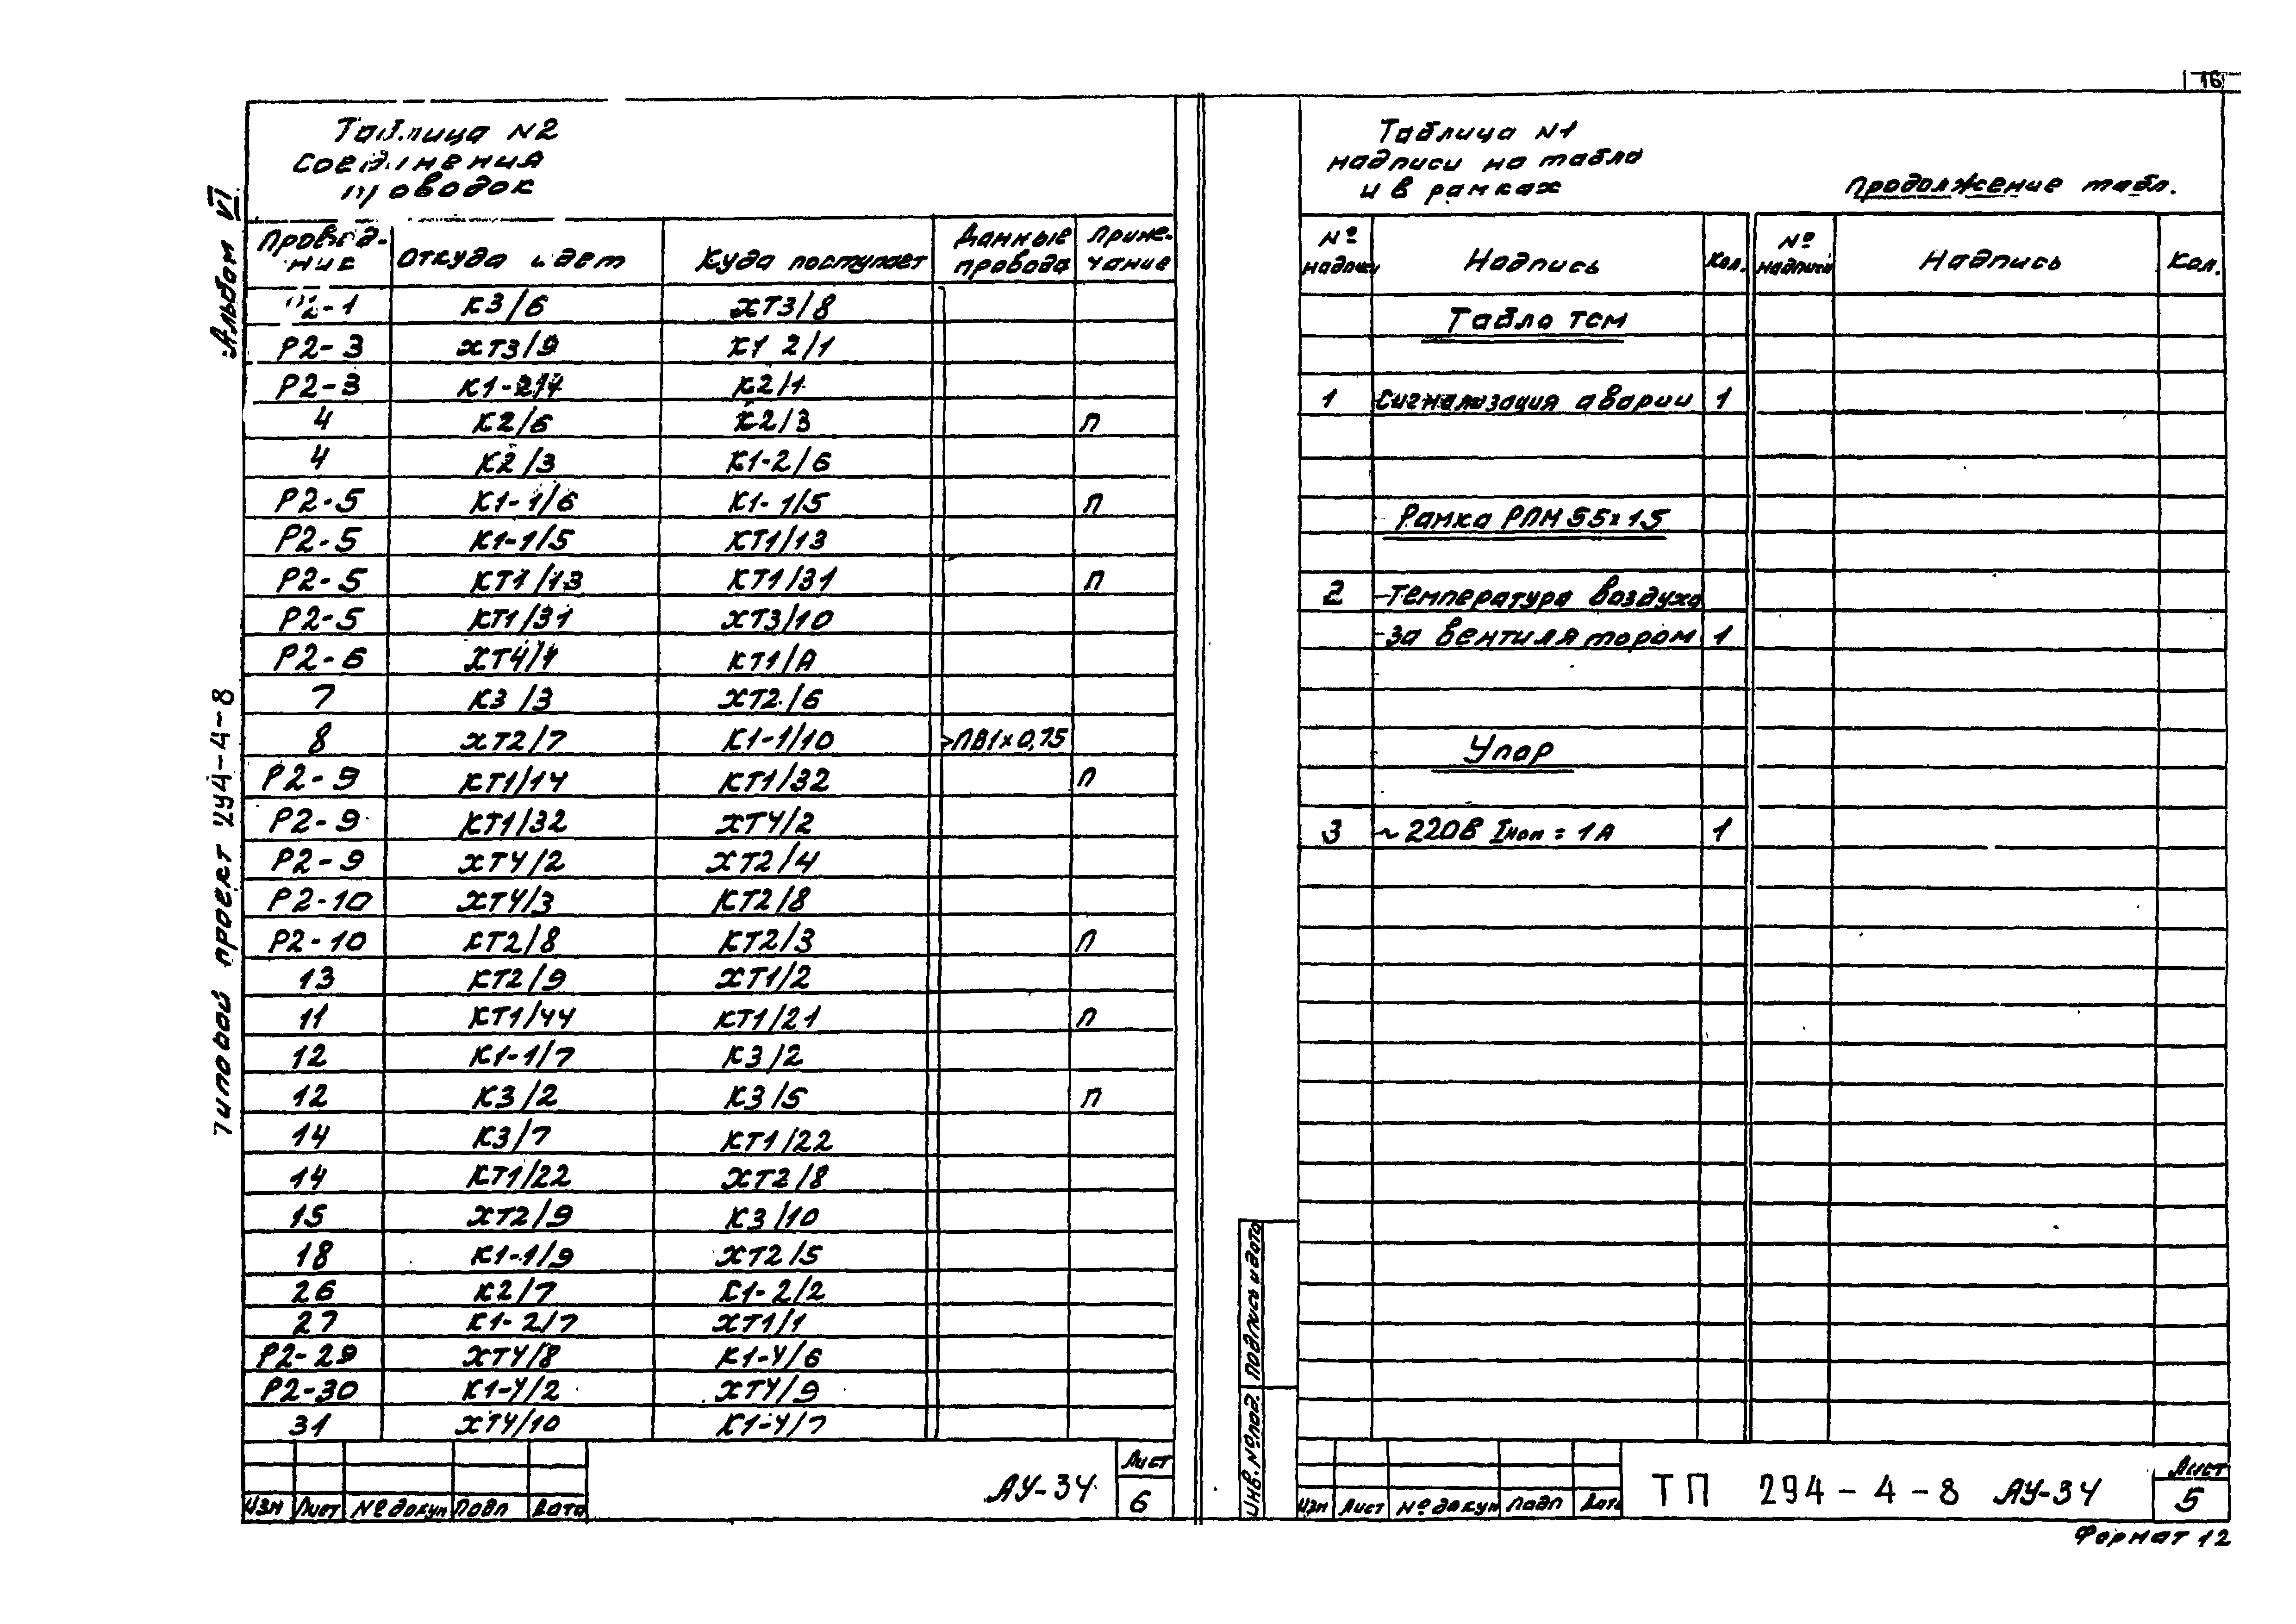 16
Альбом VI
Типовой проект 294-4-8
Таблица N2
соединения
проводок
Провод-ник | Откуда идет | Куда поступает | Данные провода | Приме-чание
2-1 | К3/6 | ХТ3/8
Р2-3 | ХТ3/9 | К1 2/1
Р2-3 | К1-2/4 | К2/1
4 | К2/6 | К2/3 | П
4 | К2/3 | К1-2/6
Р2-5 | К1-1/6 | К1-1/5 | П
Р2-5 | К1-1/5 | КТ1/13
Р2-5 | КТ1/13 | КТ1/31 | П
Р2-5 | КТ1/31 | ХТ3/10
Р2-6 | ХТ4/1 | КТ1/А
7 | К3/3 | ХТ2/6
8 | ХТ2/7 | К1-1/10 | ПВ1х0,75
Р2-9 | КТ1/14 | КТ1/32 | П
Р2-9 | КТ1/32 | ХТ4/2
Р2-9 | ХТ4/2 | ХТ2/4
Р2-10 | ХТ4/3 | КТ2/8
Р2-10 | КТ2/8 | КТ2/3 | П
13 | КТ2/9 | ХТ1/2
11 | КТ1/44 | КТ1/21 | П
12 | К1-1/7 | К3/2
12 | К3/2 | К3/5 | П
14 | К3/7 | КТ1/22
14 | КТ1/22 | ХТ2/8
15 | ХТ2/9 | К3/10
18 | К1-1/9 | ХТ2/5
26 | К2/7 | К1-2/2
27 | К1-2/7 | ХТ1/1
Р2-29 | ХТ4/8 | К1-4/6
Р2-30 | К1-4/2 | ХТ4/9
31 | ХТ4/10 | К1-4/7
Изм | Лист | № докум | Подп | Дата | АУ-34 | Лист
6
Таблица N1
надписи на табло
и в рамках
Продолжение табл.
№ надписи | Надпись | Кол. | № надписи | Надпись | Кол.
Табло ТСМ
1 | Сигнализация аварии | 1
Рамка РПМ 55х15
2 | Температура воздуха
за вентилятором | 1
Упор
3 | ~220В Iноп = 1А | 1
Подпись и дата
Инв. № под.
Изм | Лист | № докум | Подп | Дата | ТП 294-4-8 АУ-34 | Лист
5
Формат 12